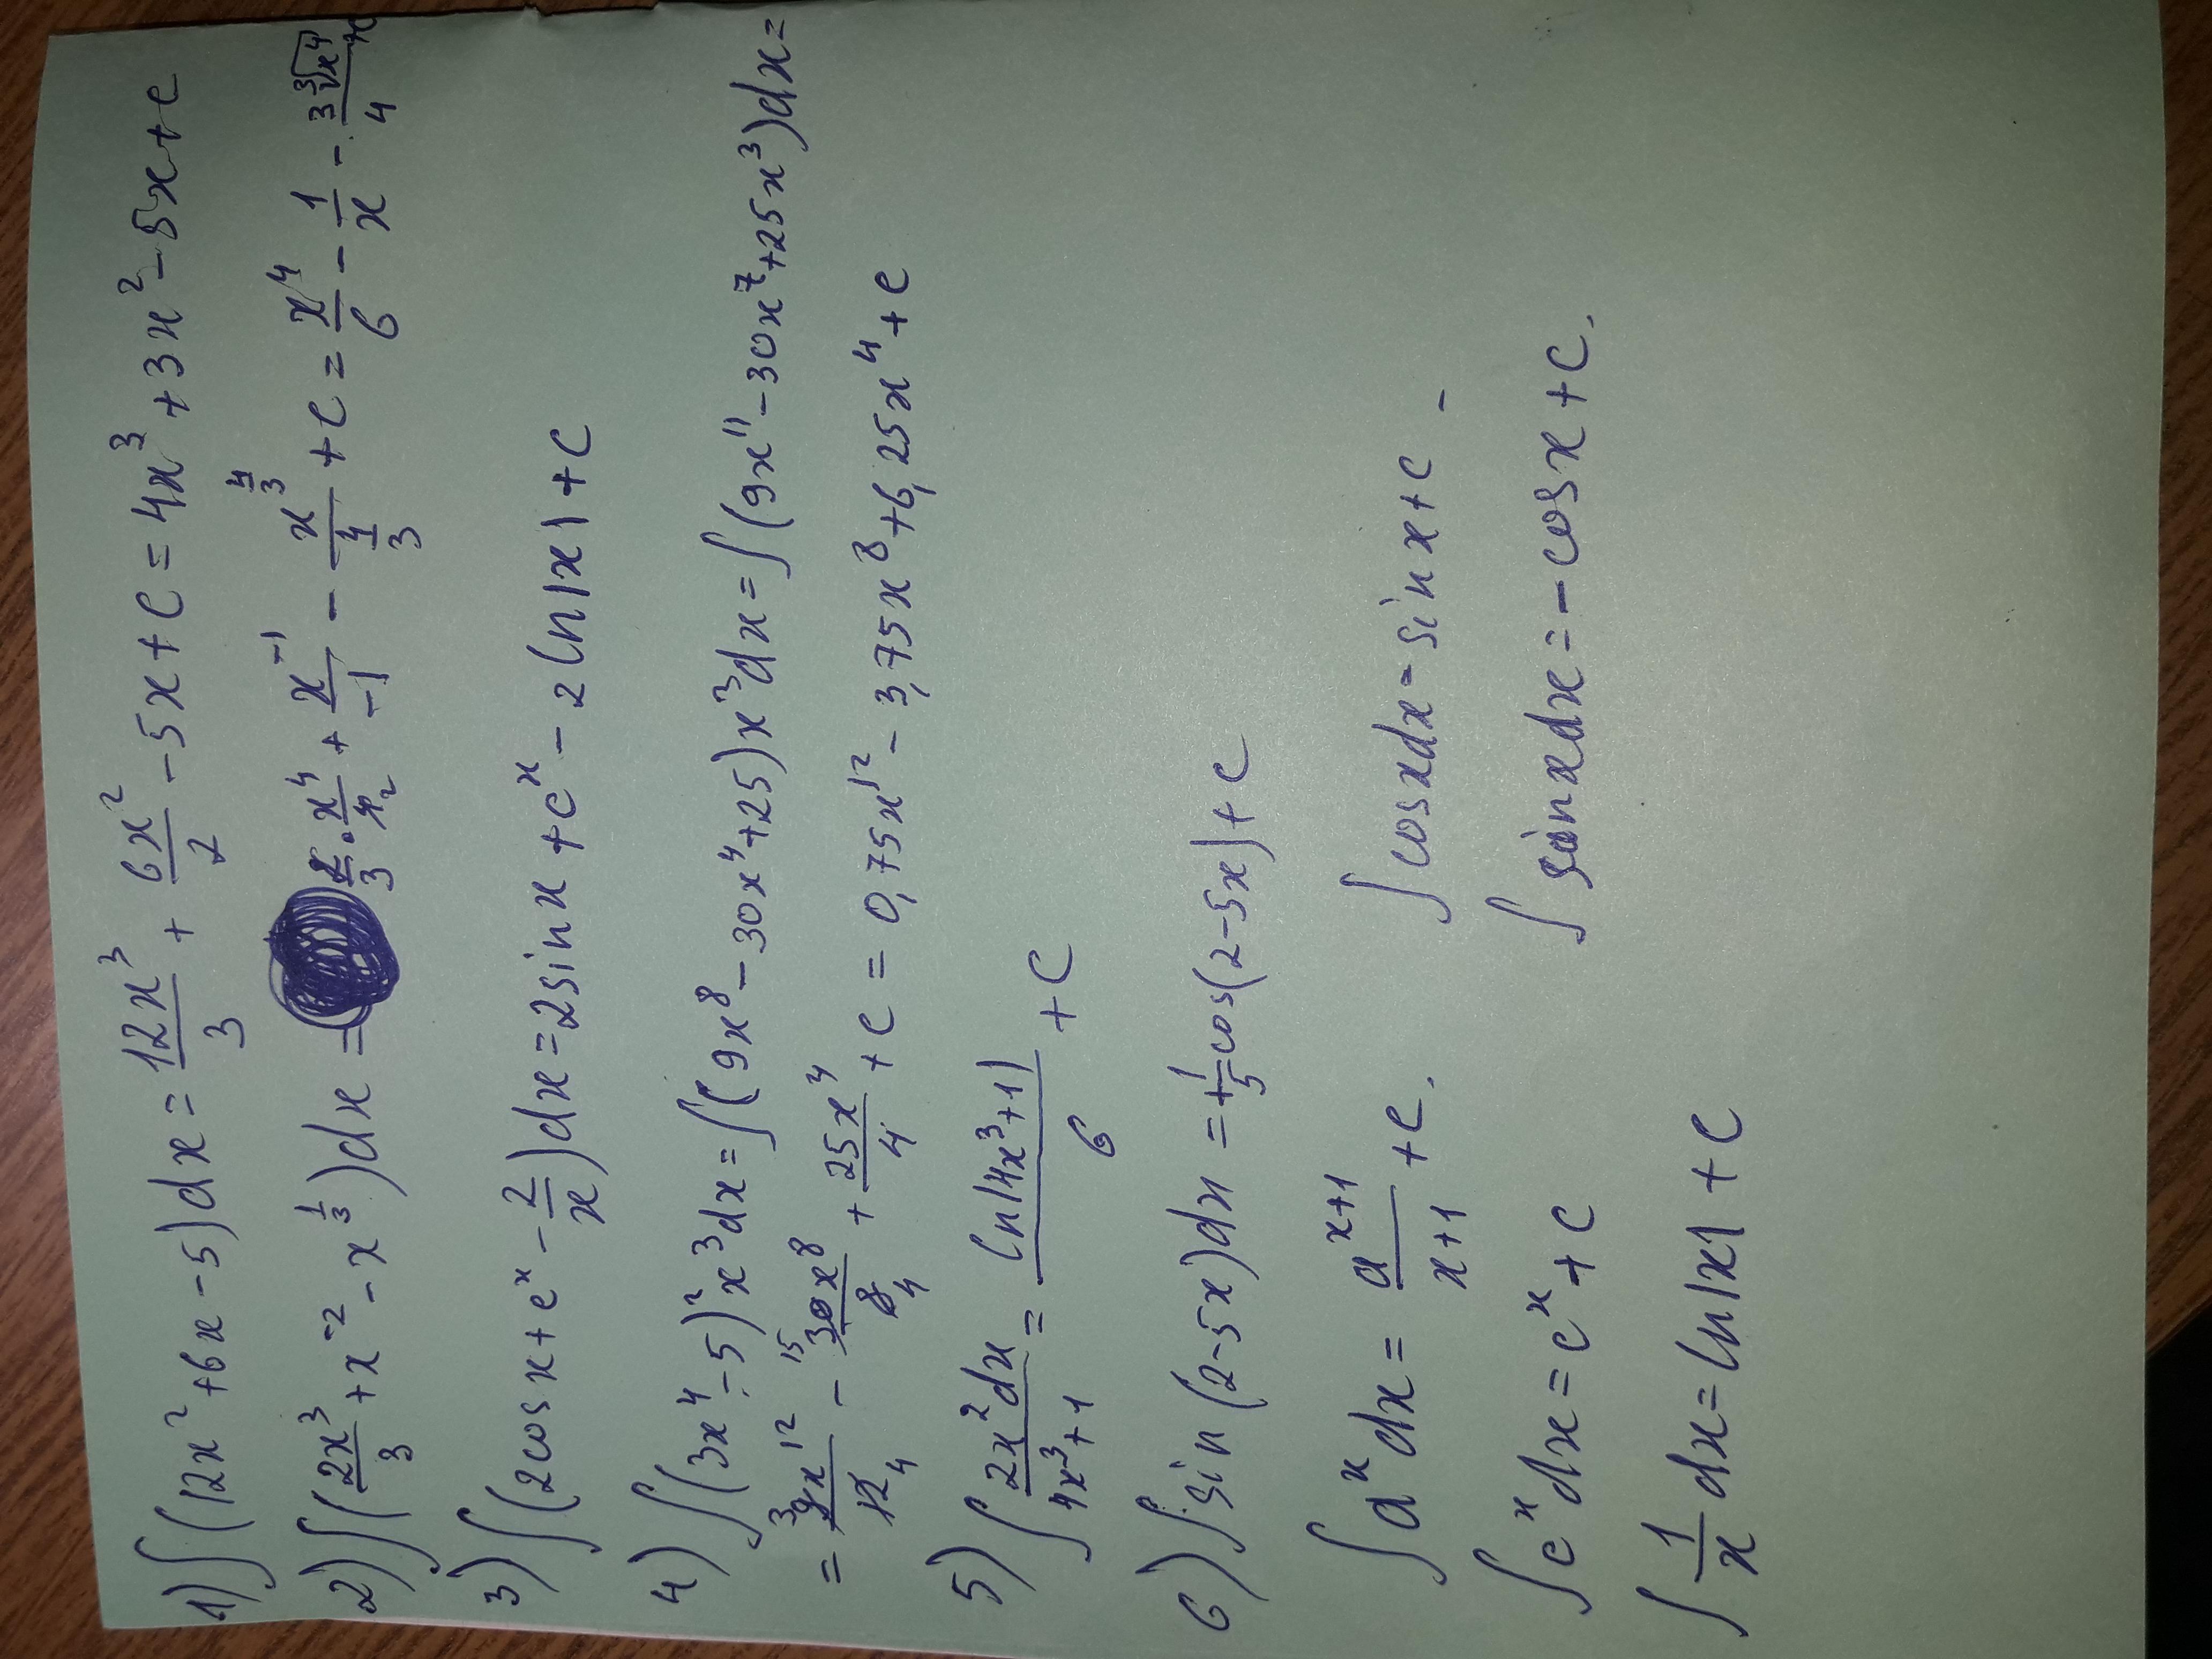 1) ∫(12x²+6x-5)dx = 12x³/3 + 6x²/2 - 5x + C = 4x³ + 3x² - 5x + c
2) ∫(2x³/3 + x⁻² - x^(1/3))dx = 2/3 · x⁴/4₂ + x⁻¹/-1 - x^(4/3)/(4/3) + c = x⁴/6 - 1/x - 3∛x⁴/4
3) ∫(2cosx + eˣ - 2/x)dx = 2sinx + eˣ - 2ln|x| + C
4) ∫(3x⁴-5)²x³dx = ∫((9x⁸ - 30x⁴ + 25)x³dx = ∫(9x¹¹ - 30x⁷ + 25x³)dx =
= ³9x¹²/12₄ - ¹⁵30x⁸/8₄ + 25x⁴/4 + c = 0,75x¹² - 3,75x⁸ + 6,25x⁴ + c
5) ∫2x²dx/(4x³+1) = ln|4x³+1|/6 + C
6) ∫sin(2-5x)dx = +1/5cos(2-5x)+c
∫aˣdx = a^(x+1)/(x+1) + c. ∫cosxdx = sinx + c
∫eˣdx = eˣ + c ∫sinxdx = -cosx + c.
∫1/x dx = ln|x| + c